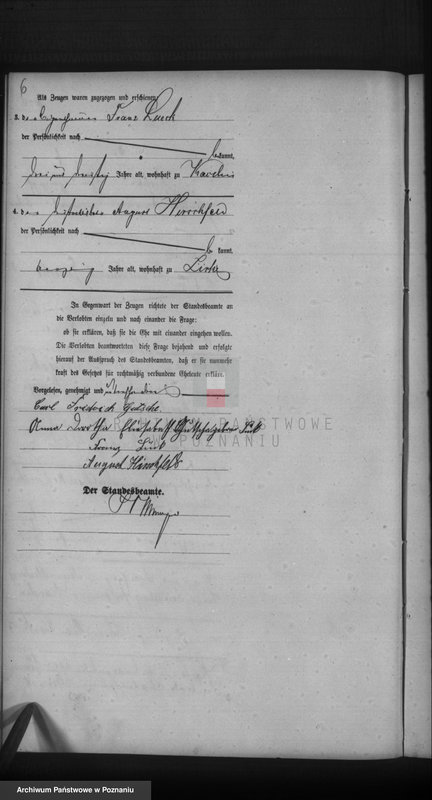 6
Als Zeugen waren zugezogen und erschienen:
3. der Franz Lueck
der Persönlichkeit nach
bekannt,
drei und dreißig Jahre alt, wohnhaft zu
4. der August Hirschfeld
der Persönlichkeit nach
be kannt,
Jahre alt, wohnhaft zu
In Gegenwart der Zeugen richtete der Standesbeamte an
die Verlobten einzeln und nach einander die Frage:
ob sie erklären, daß sie die Ehe mit einander eingehen wollen.
Die Verlobten beantworteten diese Frage bejahend und erfolgte
hierauf der Ausspruch des Standesbeamten, daß er sie nunmehr
kraft des Gesetzes für rechtmäßig verbundene Eheleute erkläre.
Vorgelesen, genehmigt und unterschrieben
Carl Friedrich
Anna Dorothea Elisabeth
Franz Lück
August Hirschfeld
Der Standesbeamte.
ARCHIWUM PAŃSTWOWE
W POZNANIU
Archiwum Państwowe w Poznaniu